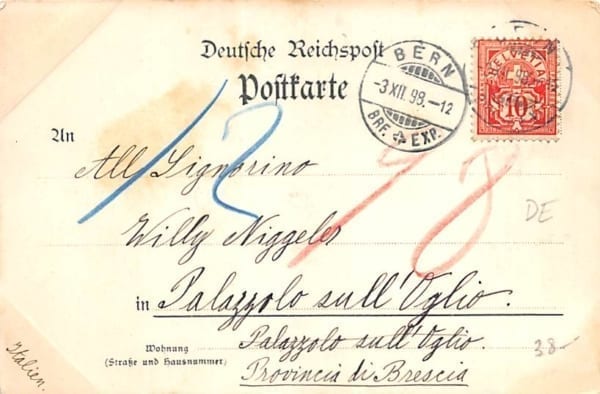 Deutsche Reichspost
Postkarte
BERN
-3 XII. 98.-12
BRF. EXP.
BERN
HELVETIA
10
An
All Signorino
Willy Niggeler
in Palazzolo sull'Oglio.
Wohnung
(Straße und Hausnummer)
Palazzolo sull'Oglio.
Provincia di Brescia
Italien.
12
DE
38-